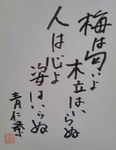 梅は匂いよ
木立はいらぬ
人は心よ
姿はいらぬ